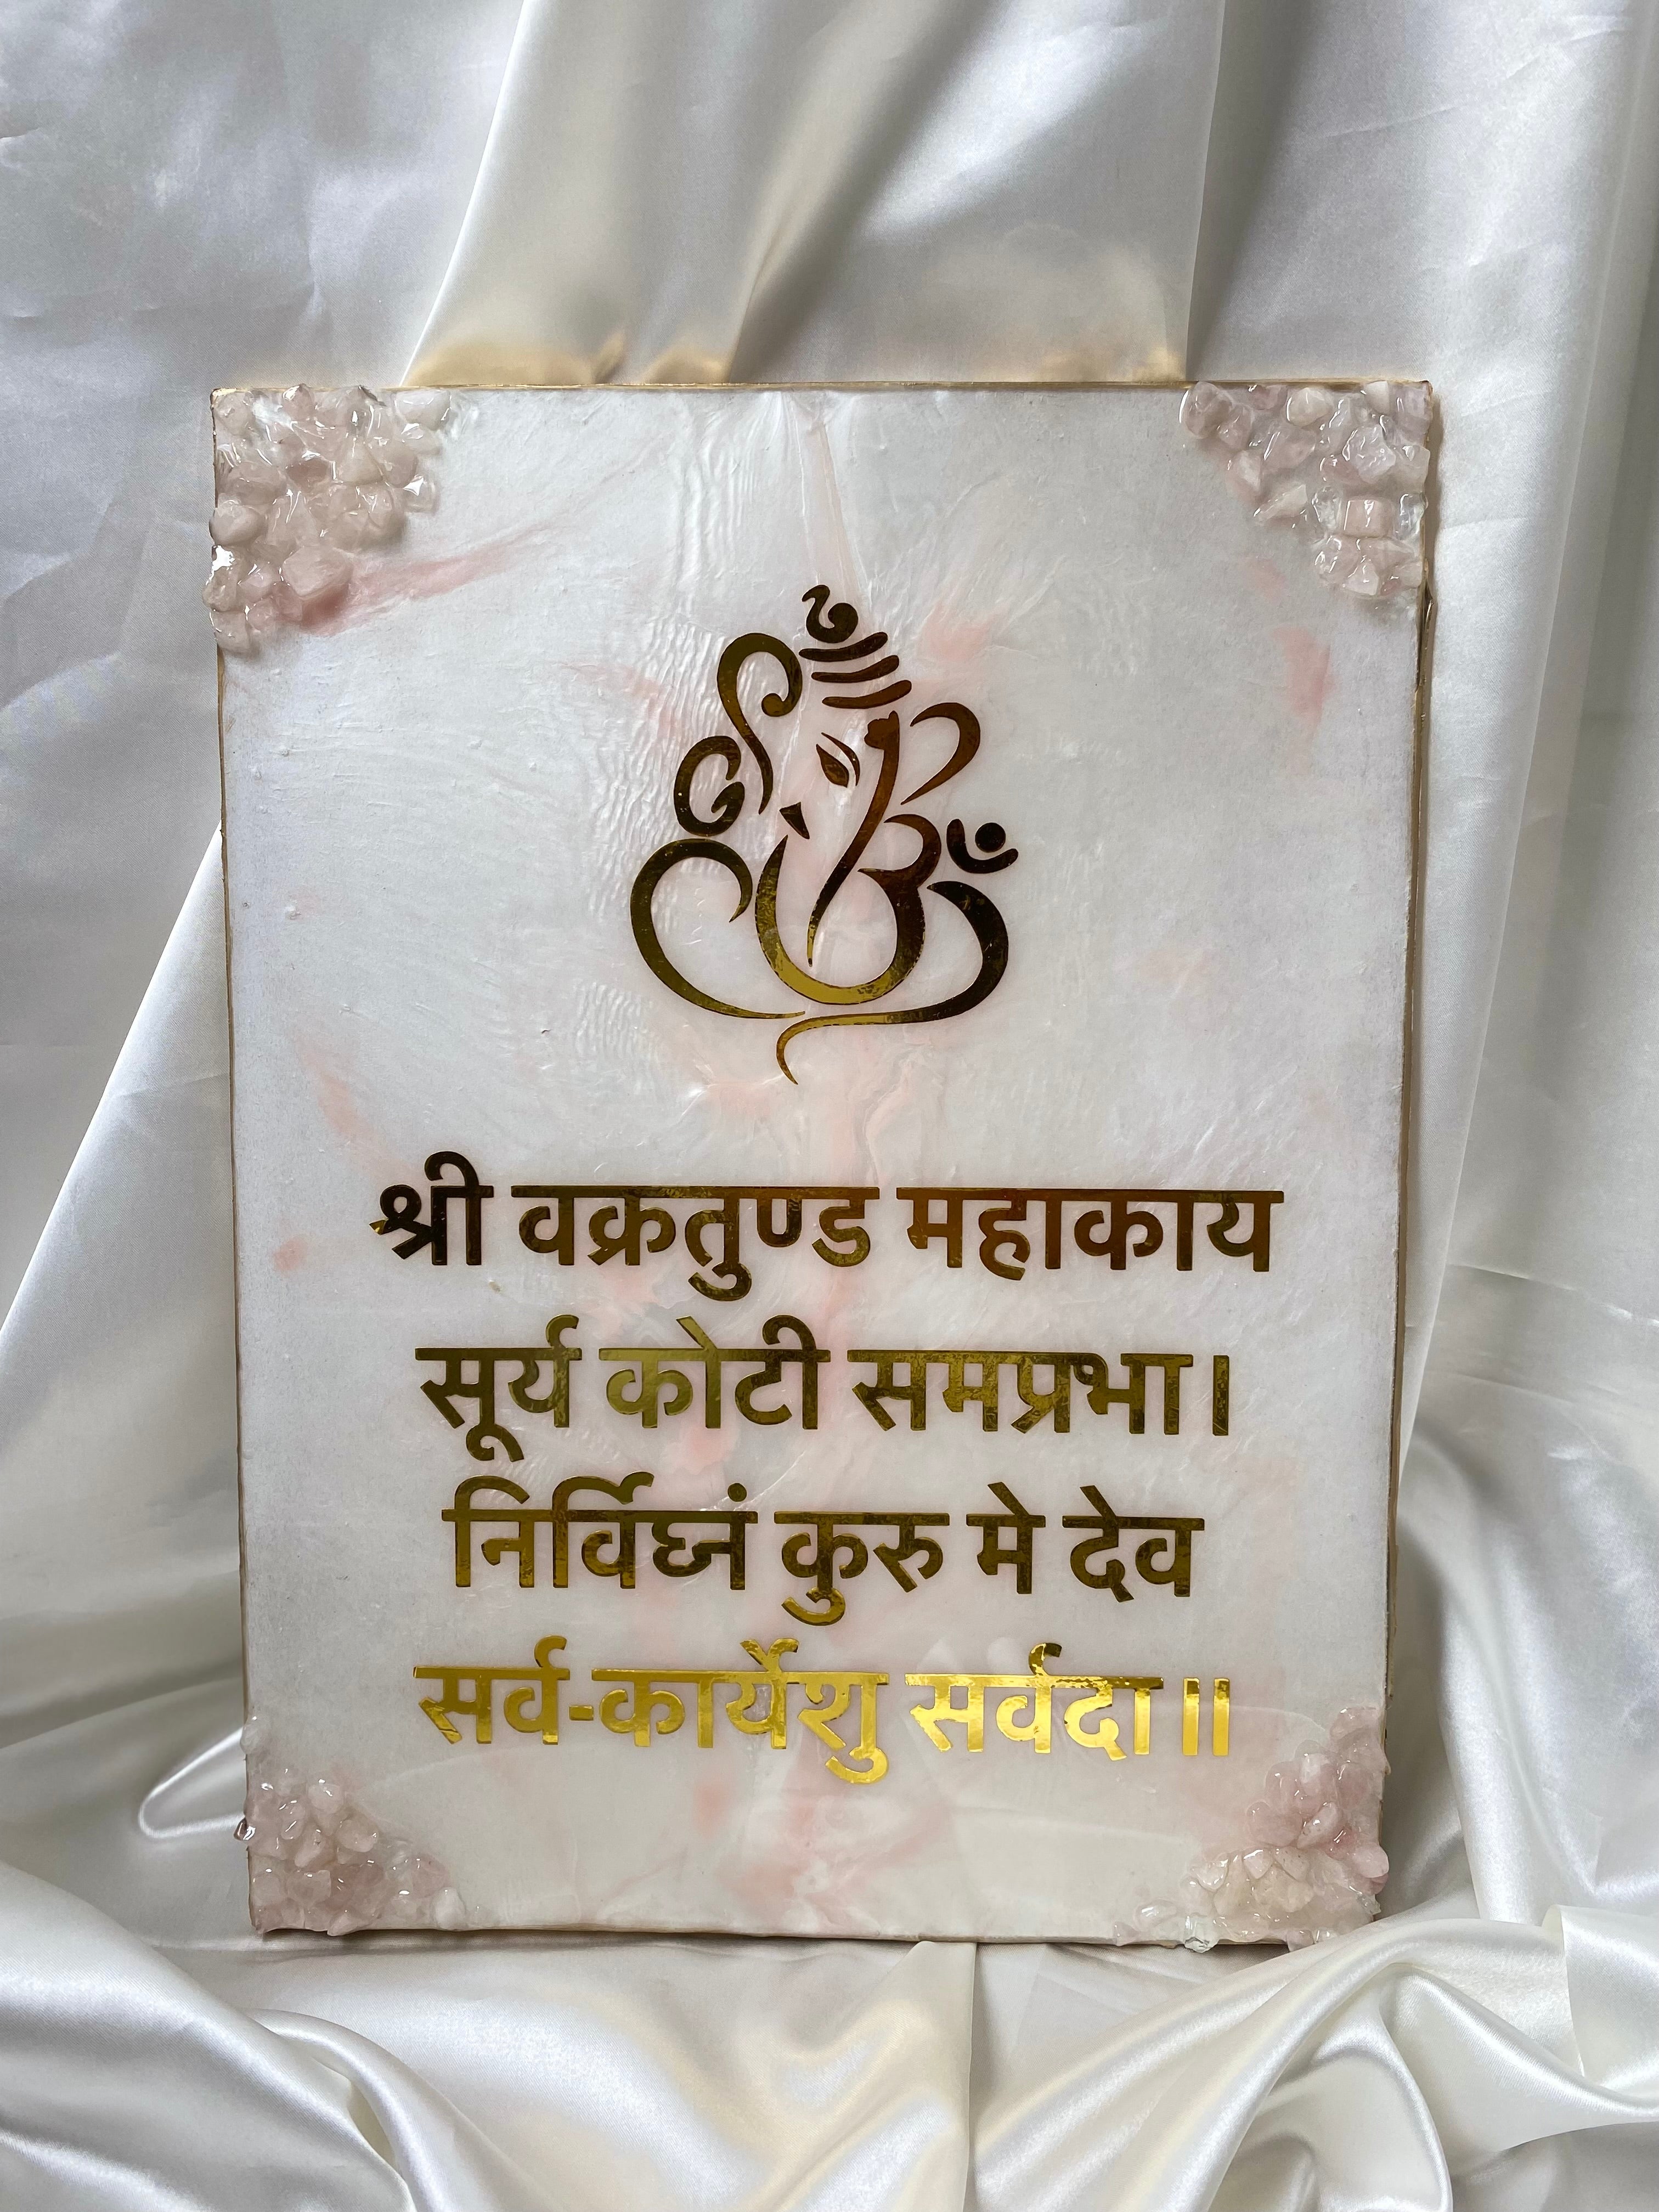 श्री वक्रतुण्ड महाकाय
सूर्य कोटी समप्रभा।
निर्विघ्नं कुरु मे देव
सर्व-कार्येशु सर्वदा॥